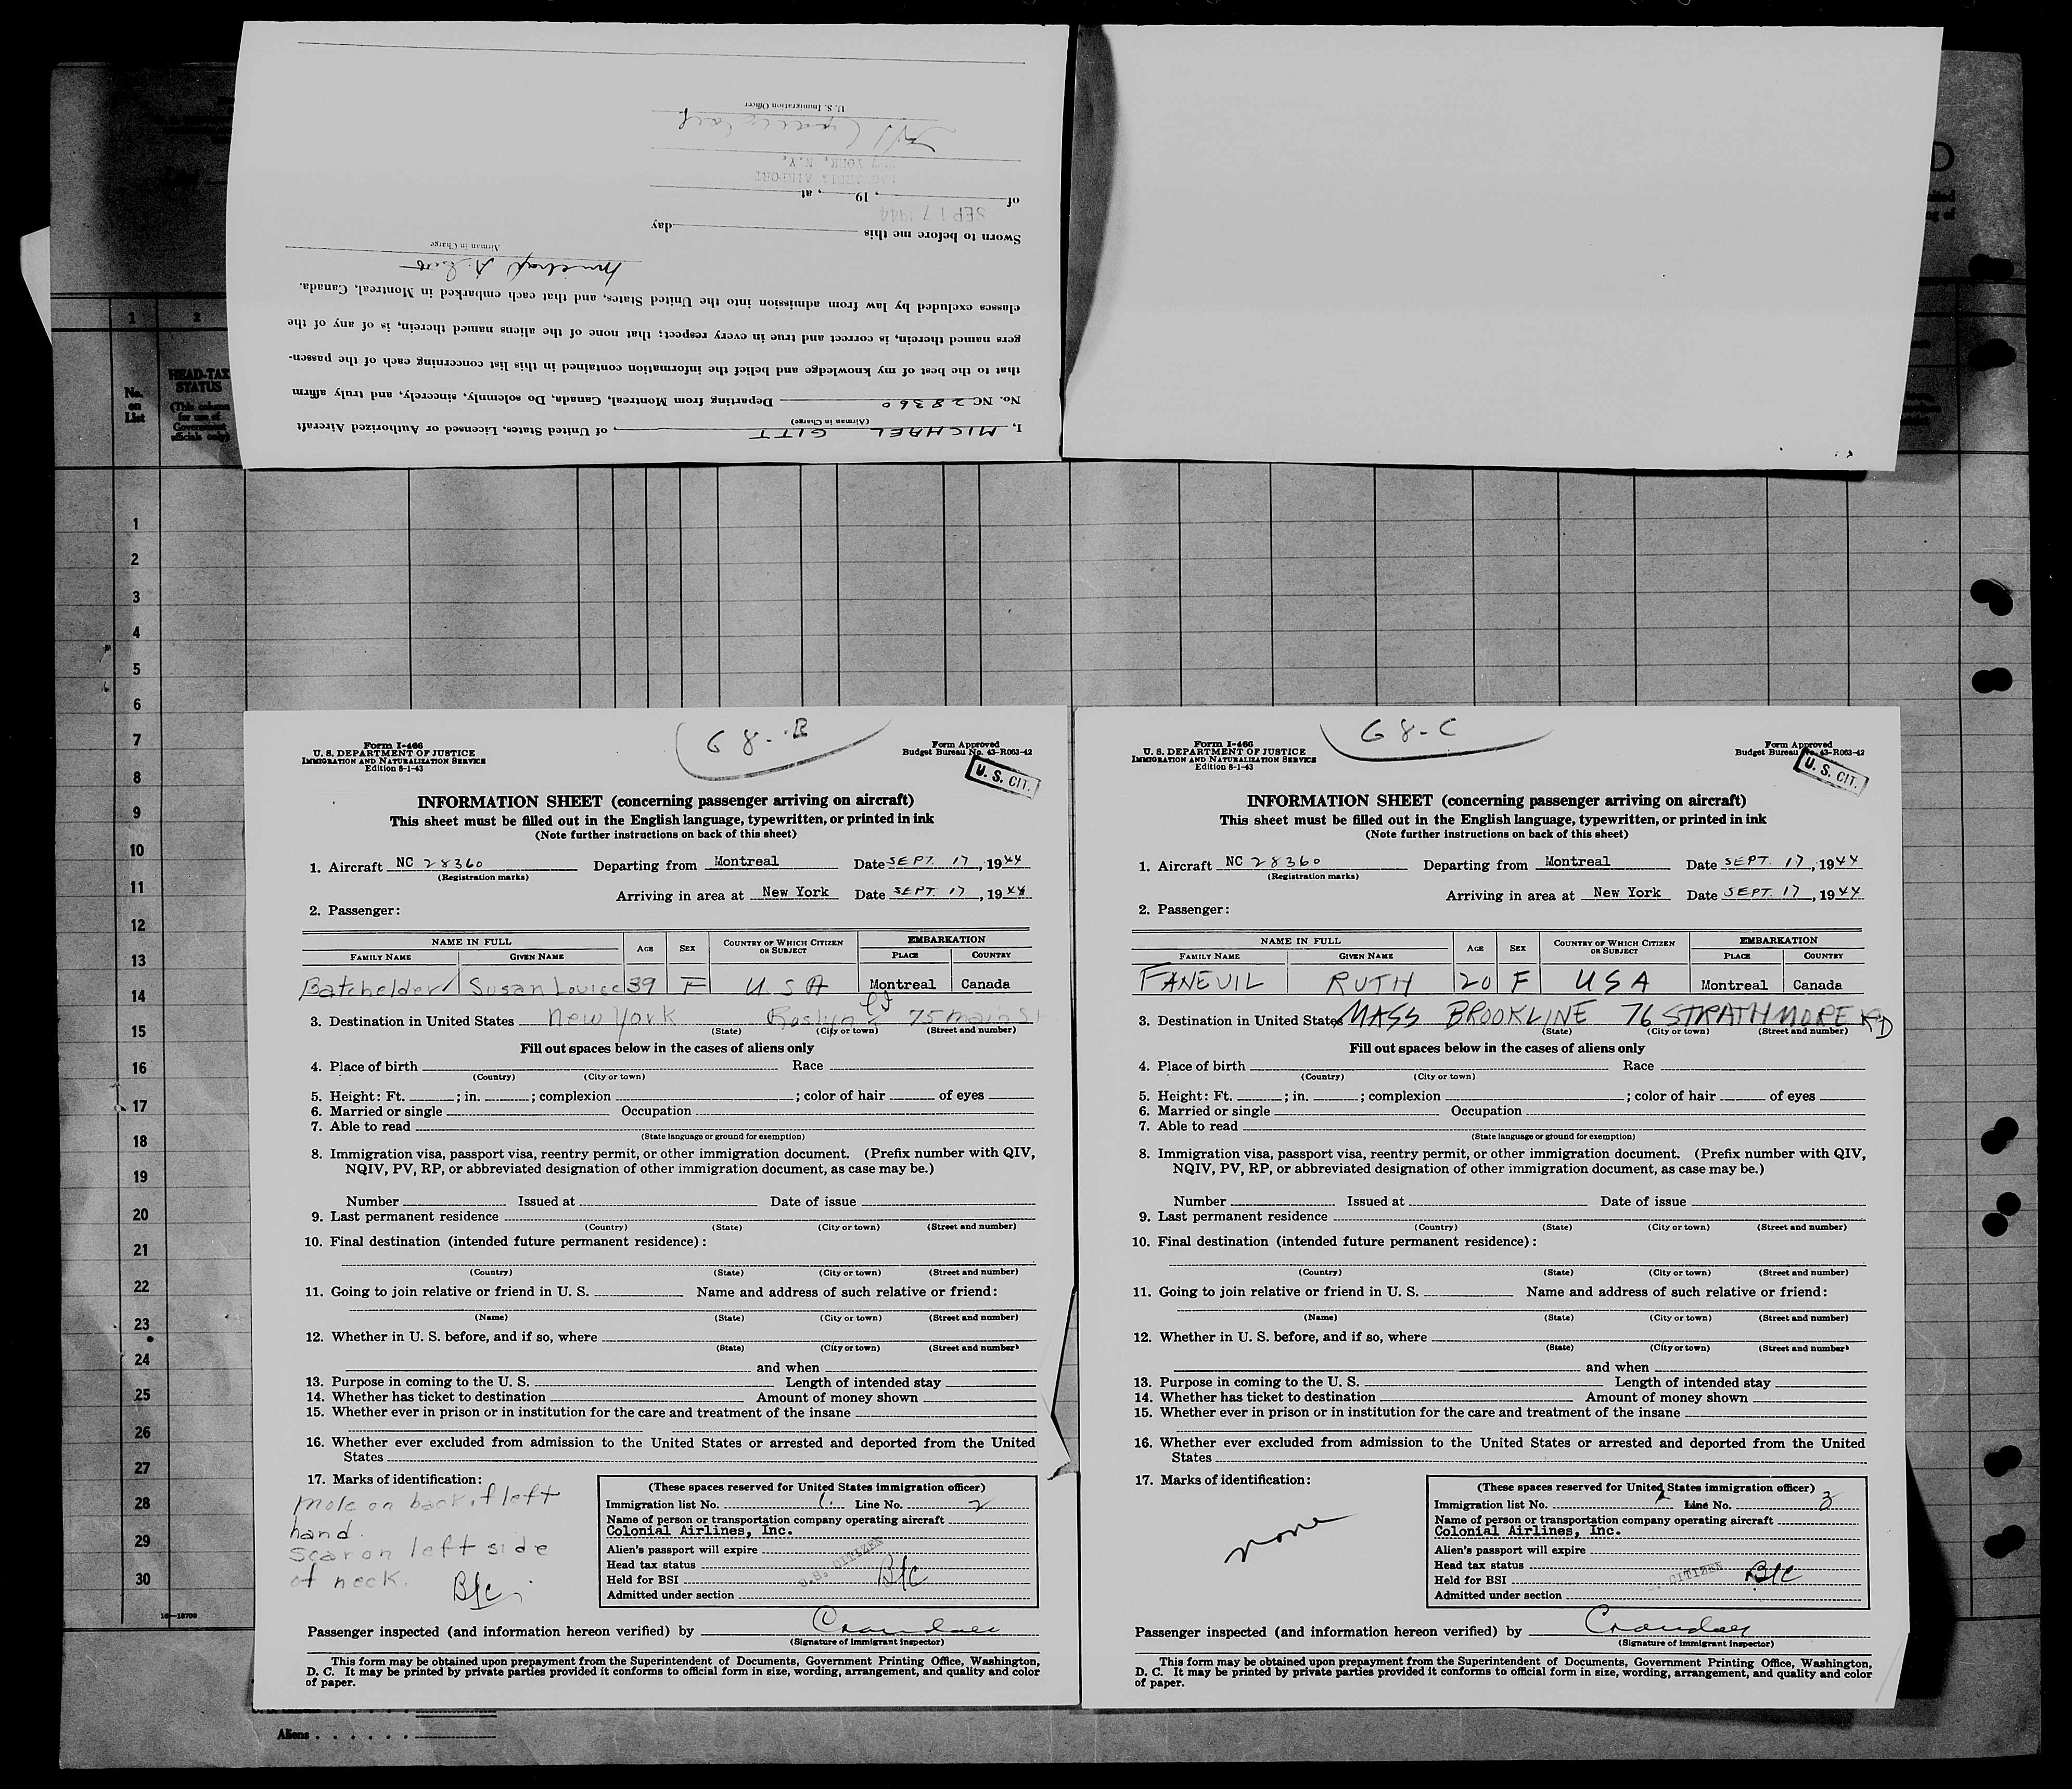 I, MICHAEL GITT, of United States, Licensed or Authorized Aircraft
(Airman in Charge)
No. NC 28360 Departing from Montreal, Canada, Do solemnly, sincerely, and truly affirm
that to the best of my knowledge and belief the information contained in this list concerning each of the passen-
gers named therein, is correct and true in every respect; that none of the aliens named therein, is of any of the
classes excluded by law from admission into the United States, and that each embarked in Montreal, Canada.
Airman in Charge
Sworn to before me this day
SEP 17 1944
of , 19 , at
AIRPORT
YORK, N.Y.
U. S. Immigration Officer
1 2
No. on List
HEAD-TAX STATUS
(This column for use of Government officials only)
1
2
3
4
5
6
7
8
9
10
11
12
13
14
15
16
17
18
19
20
21
22
23
24
25
26
27
28
29
30
16—18709
Aliens
68-B
Form I-466
U. S. DEPARTMENT OF JUSTICE
IMMIGRATION AND NATURALIZATION SERVICE
Edition 8-1-43
Form Approved
Budget Bureau No. 43-R063-42
U. S. CIT.
INFORMATION SHEET (concerning passenger arriving on aircraft)
This sheet must be filled out in the English language, typewritten, or printed in ink
(Note further instructions on back of this sheet)
1. Aircraft NC 28360 Departing from Montreal Date SEPT. 17, 1944
(Registration marks)
Arriving in area at New York Date SEPT. 17, 1944
2. Passenger:
NAME IN FULL AGE SEX COUNTRY OF WHICH CITIZEN OR SUBJECT EMBARKATION
FAMILY NAME GIVEN NAME PLACE COUNTRY
Batchelder Susan Louise 39 F U.S.A Montreal Canada
3. Destination in United States New York Roslyn 75 Main St
(State) (City or town) (Street and number)
Fill out spaces below in the cases of aliens only
4. Place of birth Race
(Country) (City or town)
5. Height: Ft. ; in. ; complexion ; color of hair of eyes
6. Married or single Occupation
7. Able to read
(State language or ground for exemption)
8. Immigration visa, passport visa, reentry permit, or other immigration document. (Prefix number with QIV,
NQIV, PV, RP, or abbreviated designation of other immigration document, as case may be.)
Number Issued at Date of issue
9. Last permanent residence
(Country) (State) (City or town) (Street and number)
10. Final destination (intended future permanent residence):
(Country) (State) (City or town) (Street and number)
11. Going to join relative or friend in U. S. Name and address of such relative or friend:
(Name) (State) (City or town) (Street and number)
12. Whether in U. S. before, and if so, where
(State) (City or town) (Street and number)
and when
13. Purpose in coming to the U. S. Length of intended stay
14. Whether has ticket to destination Amount of money shown
15. Whether ever in prison or in institution for the care and treatment of the insane
16. Whether ever excluded from admission to the United States or arrested and deported from the United
States
17. Marks of identification:
mole on back of left
hand.
scar on left side
of neck.
B/c
(These spaces reserved for United States immigration officer)
Immigration list No. 1. Line No. 2
Name of person or transportation company operating aircraft
Colonial Airlines, Inc.
Alien's passport will expire
Head tax status
U.S. CITIZEN
Held for BSI B/c
Admitted under section
Passenger inspected (and information hereon verified) by Crandall
(Signature of immigrant inspector)
This form may be obtained upon prepayment from the Superintendent of Documents, Government Printing Office, Washington,
D. C. It may be printed by private parties provided it conforms to official form in size, wording, arrangement, and quality and color
of paper.
68-C
Form I-466
U. S. DEPARTMENT OF JUSTICE
IMMIGRATION AND NATURALIZATION SERVICE
Edition 8-1-43
Form Approved
Budget Bureau No. 43-R063-42
U. S. CIT.
INFORMATION SHEET (concerning passenger arriving on aircraft)
This sheet must be filled out in the English language, typewritten, or printed in ink
(Note further instructions on back of this sheet)
1. Aircraft NC 28360 Departing from Montreal Date SEPT. 17, 1944
(Registration marks)
Arriving in area at New York Date SEPT. 17, 1944
2. Passenger:
NAME IN FULL AGE SEX COUNTRY OF WHICH CITIZEN OR SUBJECT EMBARKATION
FAMILY NAME GIVEN NAME PLACE COUNTRY
FANEVIL RUTH 20 F USA Montreal Canada
3. Destination in United States MASS BROOKLINE 76 STRATHMORE RD
(State) (City or town) (Street and number)
Fill out spaces below in the cases of aliens only
4. Place of birth Race
(Country) (City or town)
5. Height: Ft. ; in. ; complexion ; color of hair of eyes
6. Married or single Occupation
7. Able to read
(State language or ground for exemption)
8. Immigration visa, passport visa, reentry permit, or other immigration document. (Prefix number with QIV,
NQIV, PV, RP, or abbreviated designation of other immigration document, as case may be.)
Number Issued at Date of issue
9. Last permanent residence
(Country) (State) (City or town) (Street and number)
10. Final destination (intended future permanent residence):
(Country) (State) (City or town) (Street and number)
11. Going to join relative or friend in U. S. Name and address of such relative or friend:
(Name) (State) (City or town) (Street and number)
12. Whether in U. S. before, and if so, where
(State) (City or town) (Street and number)
and when
13. Purpose in coming to the U. S. Length of intended stay
14. Whether has ticket to destination Amount of money shown
15. Whether ever in prison or in institution for the care and treatment of the insane
16. Whether ever excluded from admission to the United States or arrested and deported from the United
States
17. Marks of identification:
none
(These spaces reserved for United States immigration officer)
Immigration list No. Line No. 3
Name of person or transportation company operating aircraft
Colonial Airlines, Inc.
Alien's passport will expire
Head tax status
CITIZEN
Held for BSI B/c
Admitted under section
Passenger inspected (and information hereon verified) by Crandall
(Signature of immigrant inspector)
This form may be obtained upon prepayment from the Superintendent of Documents, Government Printing Office, Washington,
D. C. It may be printed by private parties provided it conforms to official form in size, wording, arrangement, and quality and color
of paper.